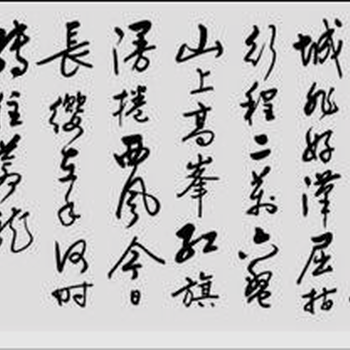 城非好漢屈指
行程二萬六盤
山上高峯紅旗
漫捲西風今日
長纓在手何时
縛住蒼龍